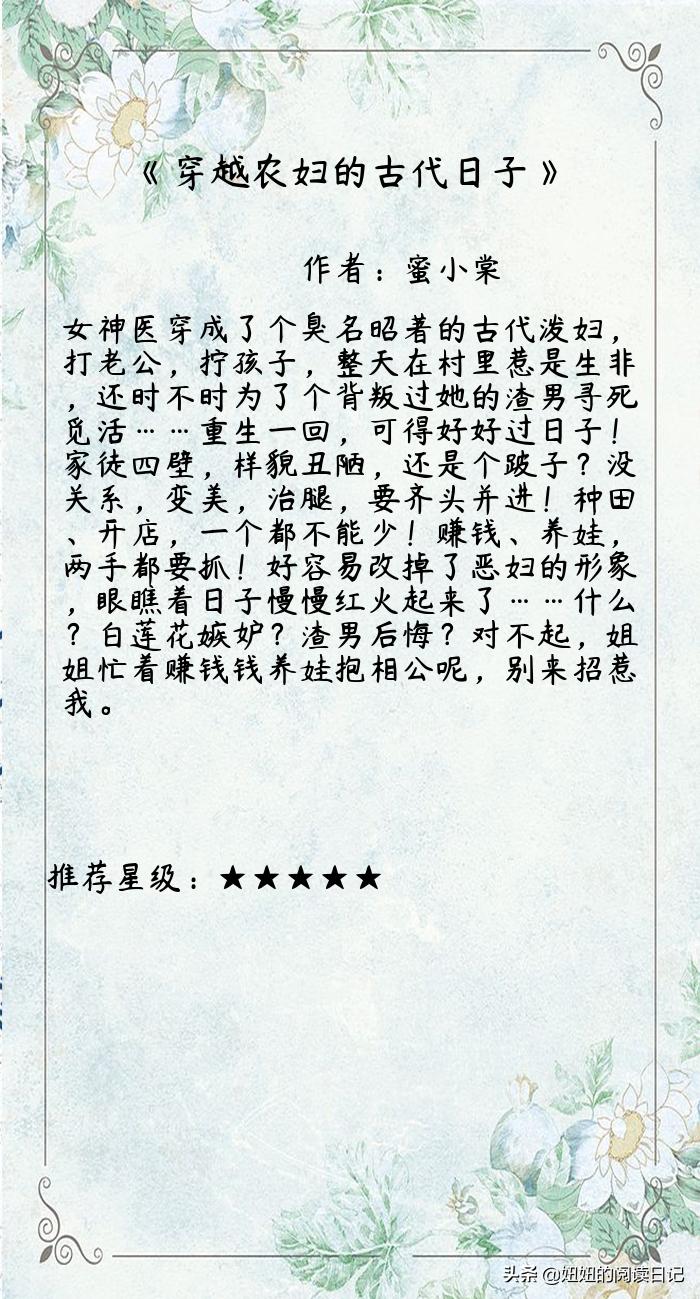 《穿越农妇的古代日子》
作者：蜜小棠
女神医穿成了个臭名昭著的古代泼妇，
打老公，拧孩子，整天在村里惹是生非
，还时不时为了个背叛过她的渣男寻死
觅活……重生一回，可得好好过日子！
家徒四壁，样貌丑陋，还是个跛子？没
关系，变美，治腿，要齐头并进！种田
、开店，一个都不能少！赚钱、养娃，
两手都要抓！好容易改掉了恶妇的形象
，眼瞧着日子慢慢红火起来了……什么
？白莲花嫉妒？渣男后悔？对不起，姐
姐忙着赚钱钱养娃抱相公呢，别来招惹
我。
推荐星级：★★★★★
头条 @妞妞的阅读日记